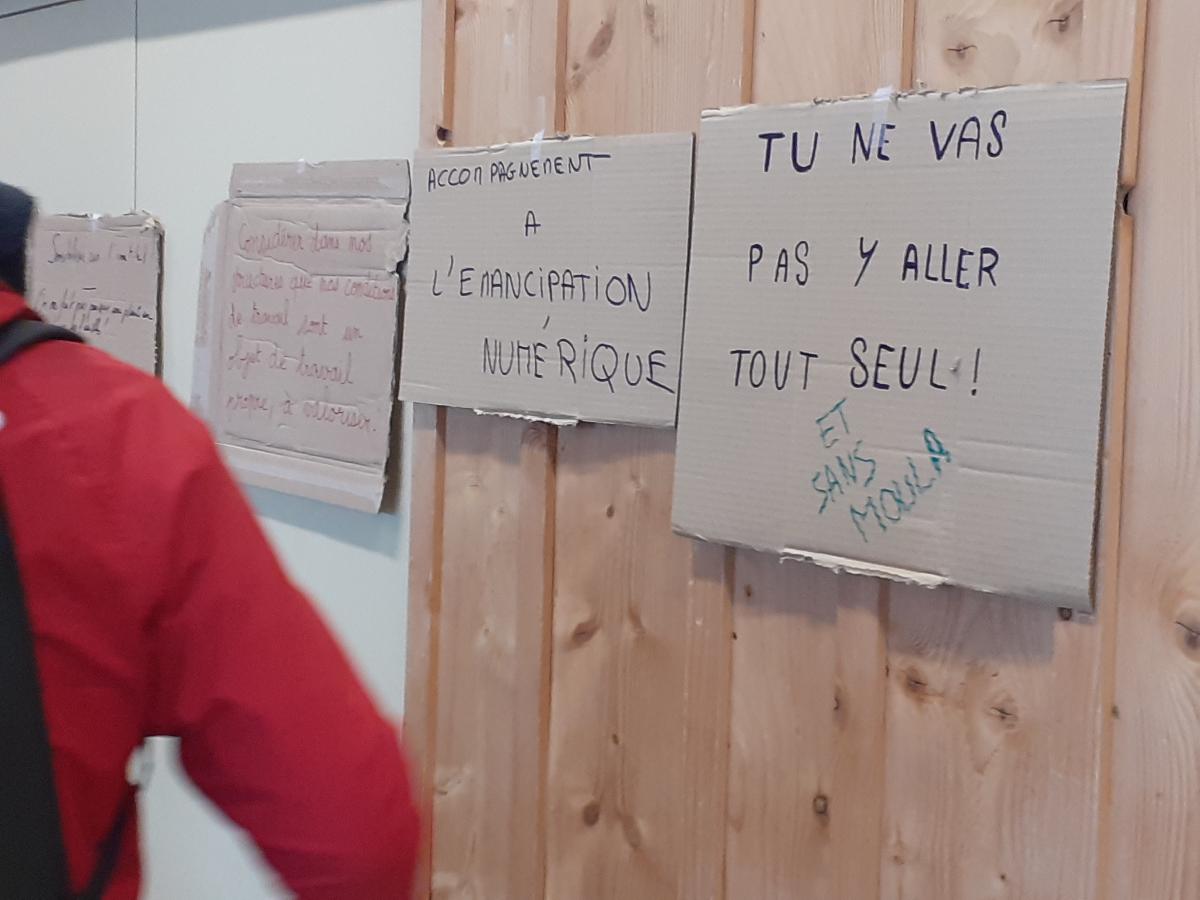 Considérer dans nos
structures que nos conditions
de travail sont un
sujet de travail
propre, à valoriser.
ACCOMPAGNEMENT
A
L'EMANCIPATION
NUMÉRIQUE
TU NE VAS
PAS Y ALLER
TOUT SEUL !
ET
SANS